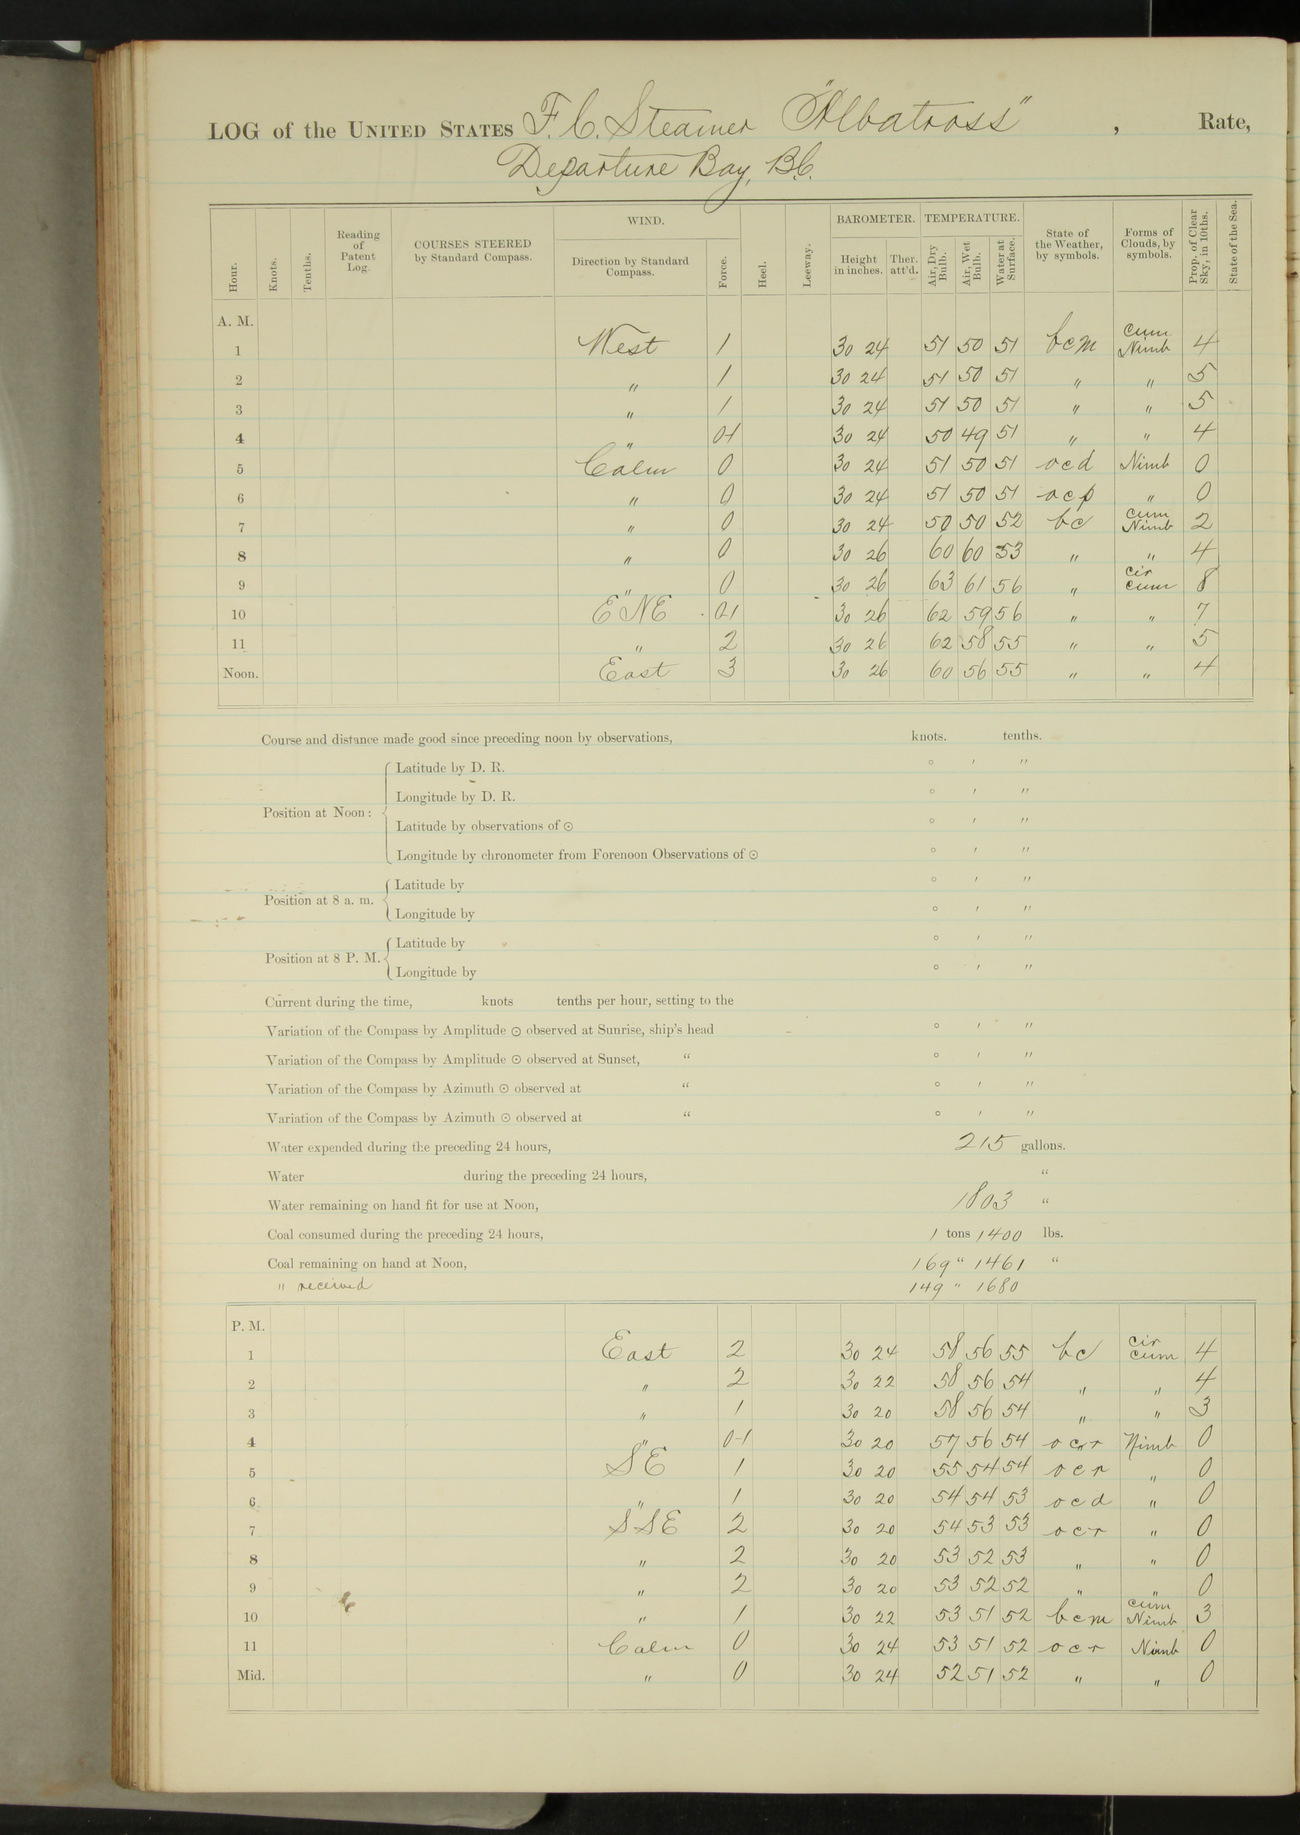 LOG of the UNITED STATES F. C. Steamer "Albatross", Rate,
Departure Bay, B.C.
Hour. Knots. Tenths. Reading of Patent Log. COURSES STEERED by Standard Compass. WIND. Direction by Standard Compass. Force. Heel. Leeway. BAROMETER. Height in inches. Ther. att'd. TEMPERATURE. Air, Dry Bulb. Air, Wet Bulb. Water at Surface. State of the Weather, by symbols. Forms of Clouds, by symbols. Prop. of Clear Sky, in 10ths. State of the Sea.
A. M.
1 West 1 30 24 51 50 51 bcm Cum Nimb 4
2 " 1 30 24 51 50 51 " " 5
3 " 1 30 24 51 50 51 " " 5
4 " 0-1 30 24 50 49 51 " " 4
5 Calm 0 30 24 51 50 51 ocd Nimb 0
6 " 0 30 24 51 50 51 ocp " 0
7 " 0 30 24 50 50 52 bc Cum Nimb 2
8 " 0 30 26 60 60 53 " " 4
9 " 0 30 26 63 61 56 " cir cum 8
10 ENE 0-1 30 26 62 59 56 " " 7
11 " 2 30 26 62 58 55 " " 5
Noon. East 3 30 26 60 56 55 " " 4
Course and distance made good since preceding noon by observations, knots. tenths.
Position at Noon:
Latitude by D. R. ° ′ ″
Longitude by D. R. ° ′ ″
Latitude by observations of ⊙ ° ′ ″
Longitude by chronometer from Forenoon Observations of ⊙ ° ′ ″
Position at 8 a. m.
Latitude by ° ′ ″
Longitude by ° ′ ″
Position at 8 P. M.
Latitude by ° ′ ″
Longitude by ° ′ ″
Current during the time, knots tenths per hour, setting to the
Variation of the Compass by Amplitude ⊙ observed at Sunrise, ship's head ° ′ ″
Variation of the Compass by Amplitude ⊙ observed at Sunset, " ° ′ ″
Variation of the Compass by Azimuth ⊙ observed at " ° ′ ″
Variation of the Compass by Azimuth ⊙ observed at " ° ′ ″
Water expended during the preceding 24 hours, 215 gallons.
Water during the preceding 24 hours, "
Water remaining on hand fit for use at Noon, 1803 "
Coal consumed during the preceding 24 hours, 1 tons 1400 lbs.
Coal remaining on hand at Noon, 169 " 1461 "
" received 149 " 1680
P. M.
1 East 2 30 24 58 56 55 bc cir cum 4
2 " 2 30 22 58 56 54 " " 4
3 " 1 30 20 58 56 54 " " 3
4 " 0-1 30 20 57 56 54 ocr Nimb 0
5 SE 1 30 20 55 54 54 ocr " 0
6 " 1 30 20 54 54 53 ocd " 0
7 SSE 2 30 20 54 53 53 ocr " 0
8 " 2 30 20 53 52 53 " " 0
9 " 2 30 20 53 52 52 " " 0
10 " 1 30 22 53 51 52 bcm cum Nimb 3
11 Calm 0 30 24 53 51 52 ocr Nimb 0
Mid. " 0 30 24 52 51 52 " " 0